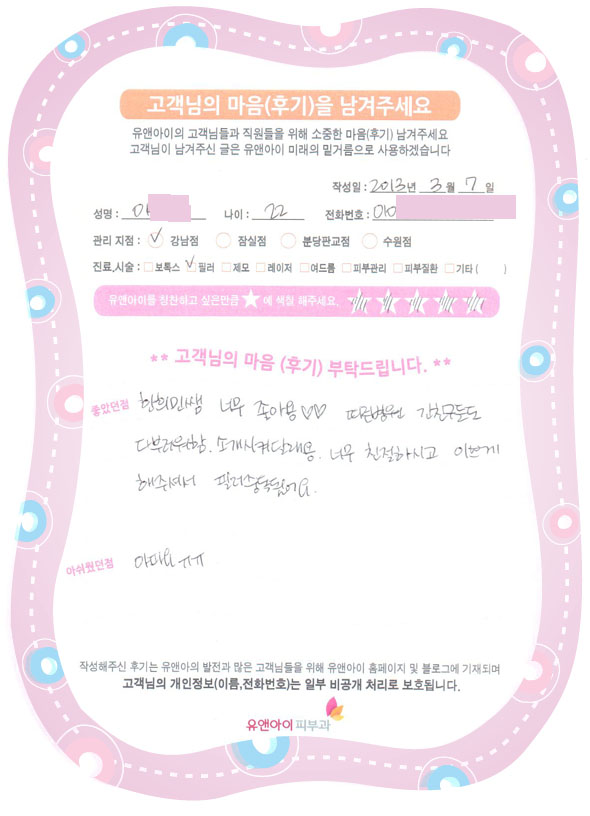 고객님의 마음(후기)을 남겨주세요
유앤아이의 고객님들과 직원들을 위해 소중한 마음(후기) 남겨주세요
고객님이 남겨주신 글은 유앤아이 미래의 밑거름으로 사용하겠습니다
작성일 : 2013년 3월 7일
성명 : 나이 : 22 전화번호 : 010
관리 지점 : 강남점 잠실점 분당판교점 수원점
진료,시술 : 보톡스 필러 제모 레이저 여드름 피부관리 피부질환 기타 ( )
유앤아이를 칭찬하고 싶은만큼 ★ 에 색칠 해주세요.
** 고객님의 마음 (후기) 부탁드립니다. **
좋았던점 한희민쌤 너무 좋아용♡♡ 따른병원 간친구들도
다부러워함. 소개시켜달래용. 너무 친절하시고 이쁘게
해주셔서 필러중독됬어요.
아쉬웠던점 아파요 ㅠㅠ
작성해주신 후기는 유앤아의 발전과 많은 고객님들을 위해 유앤아이 홈페이지 및 블로그에 기재되며
고객님의 개인정보(이름,전화번호)는 일부 비공개 처리로 보호됩니다.
유앤아이피부과